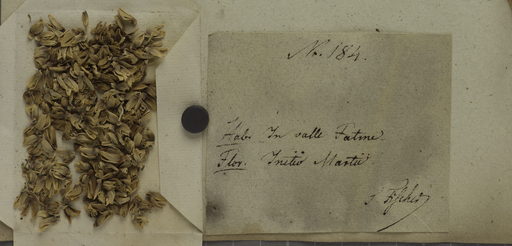 No. 184.
Hab. In valle Fatme
Flor. Initio Martii